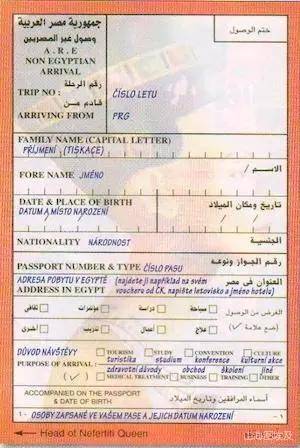 جمهورية مصر العربية
وصول غير المصريين
ختم الوصول
A . R . E
NON EGYPTIAN
ARRIVAL
رقم الرحلة
TRIP NO : ČÍSLO LETU
قادم من
ARRIVING FROM PRG
FAMILY NAME (CAPITAL LETTER)
PŘÍJMENÍ, (TISKACE)
الاسم /
FORE NAME JMÉNO
DATE & PLACE OF BIRTH تاريخ ومكان الميلاد
DATUM A MÍSTO NAROZENÍ
NATIONALITY NÁRODNOST الجنسية
PASSPORT NUMBER & TYPE ČÍSLO PASU رقم الجواز ونوعه
ADRESA POBYTU V EGYPTĚ (najdete ji například na svém العنوان في مصر
ADDRESS IN EGYPT voucheru od CK, napište letovisko a jméno hotelu)
ثقافي مؤتمرات دراسة سياحة الغرض من الوصول
أخرى تدريب أعمال علاج (ضع علامة ✓)
DŮVOD NÁVŠTĚVY TOURISM STUDY CONVENTION CULTURE
turistika studium konference kulturní akce
PURPOSE OF ARRIVAL zdravotní důvody obchod školení jiné
MEDICAL TREATMENT BUSINESS TRAINING OTHER
ACCOMPANIED ON THE PASSPORT أسماء المرافقين وتاريخ الميلاد
& DATE OF BIRTH
OSOBY ZAPSANÉ VE VAŠEM PASE A JEJICH DATUM NAROZENÍ
Head of Nefertiti Queen